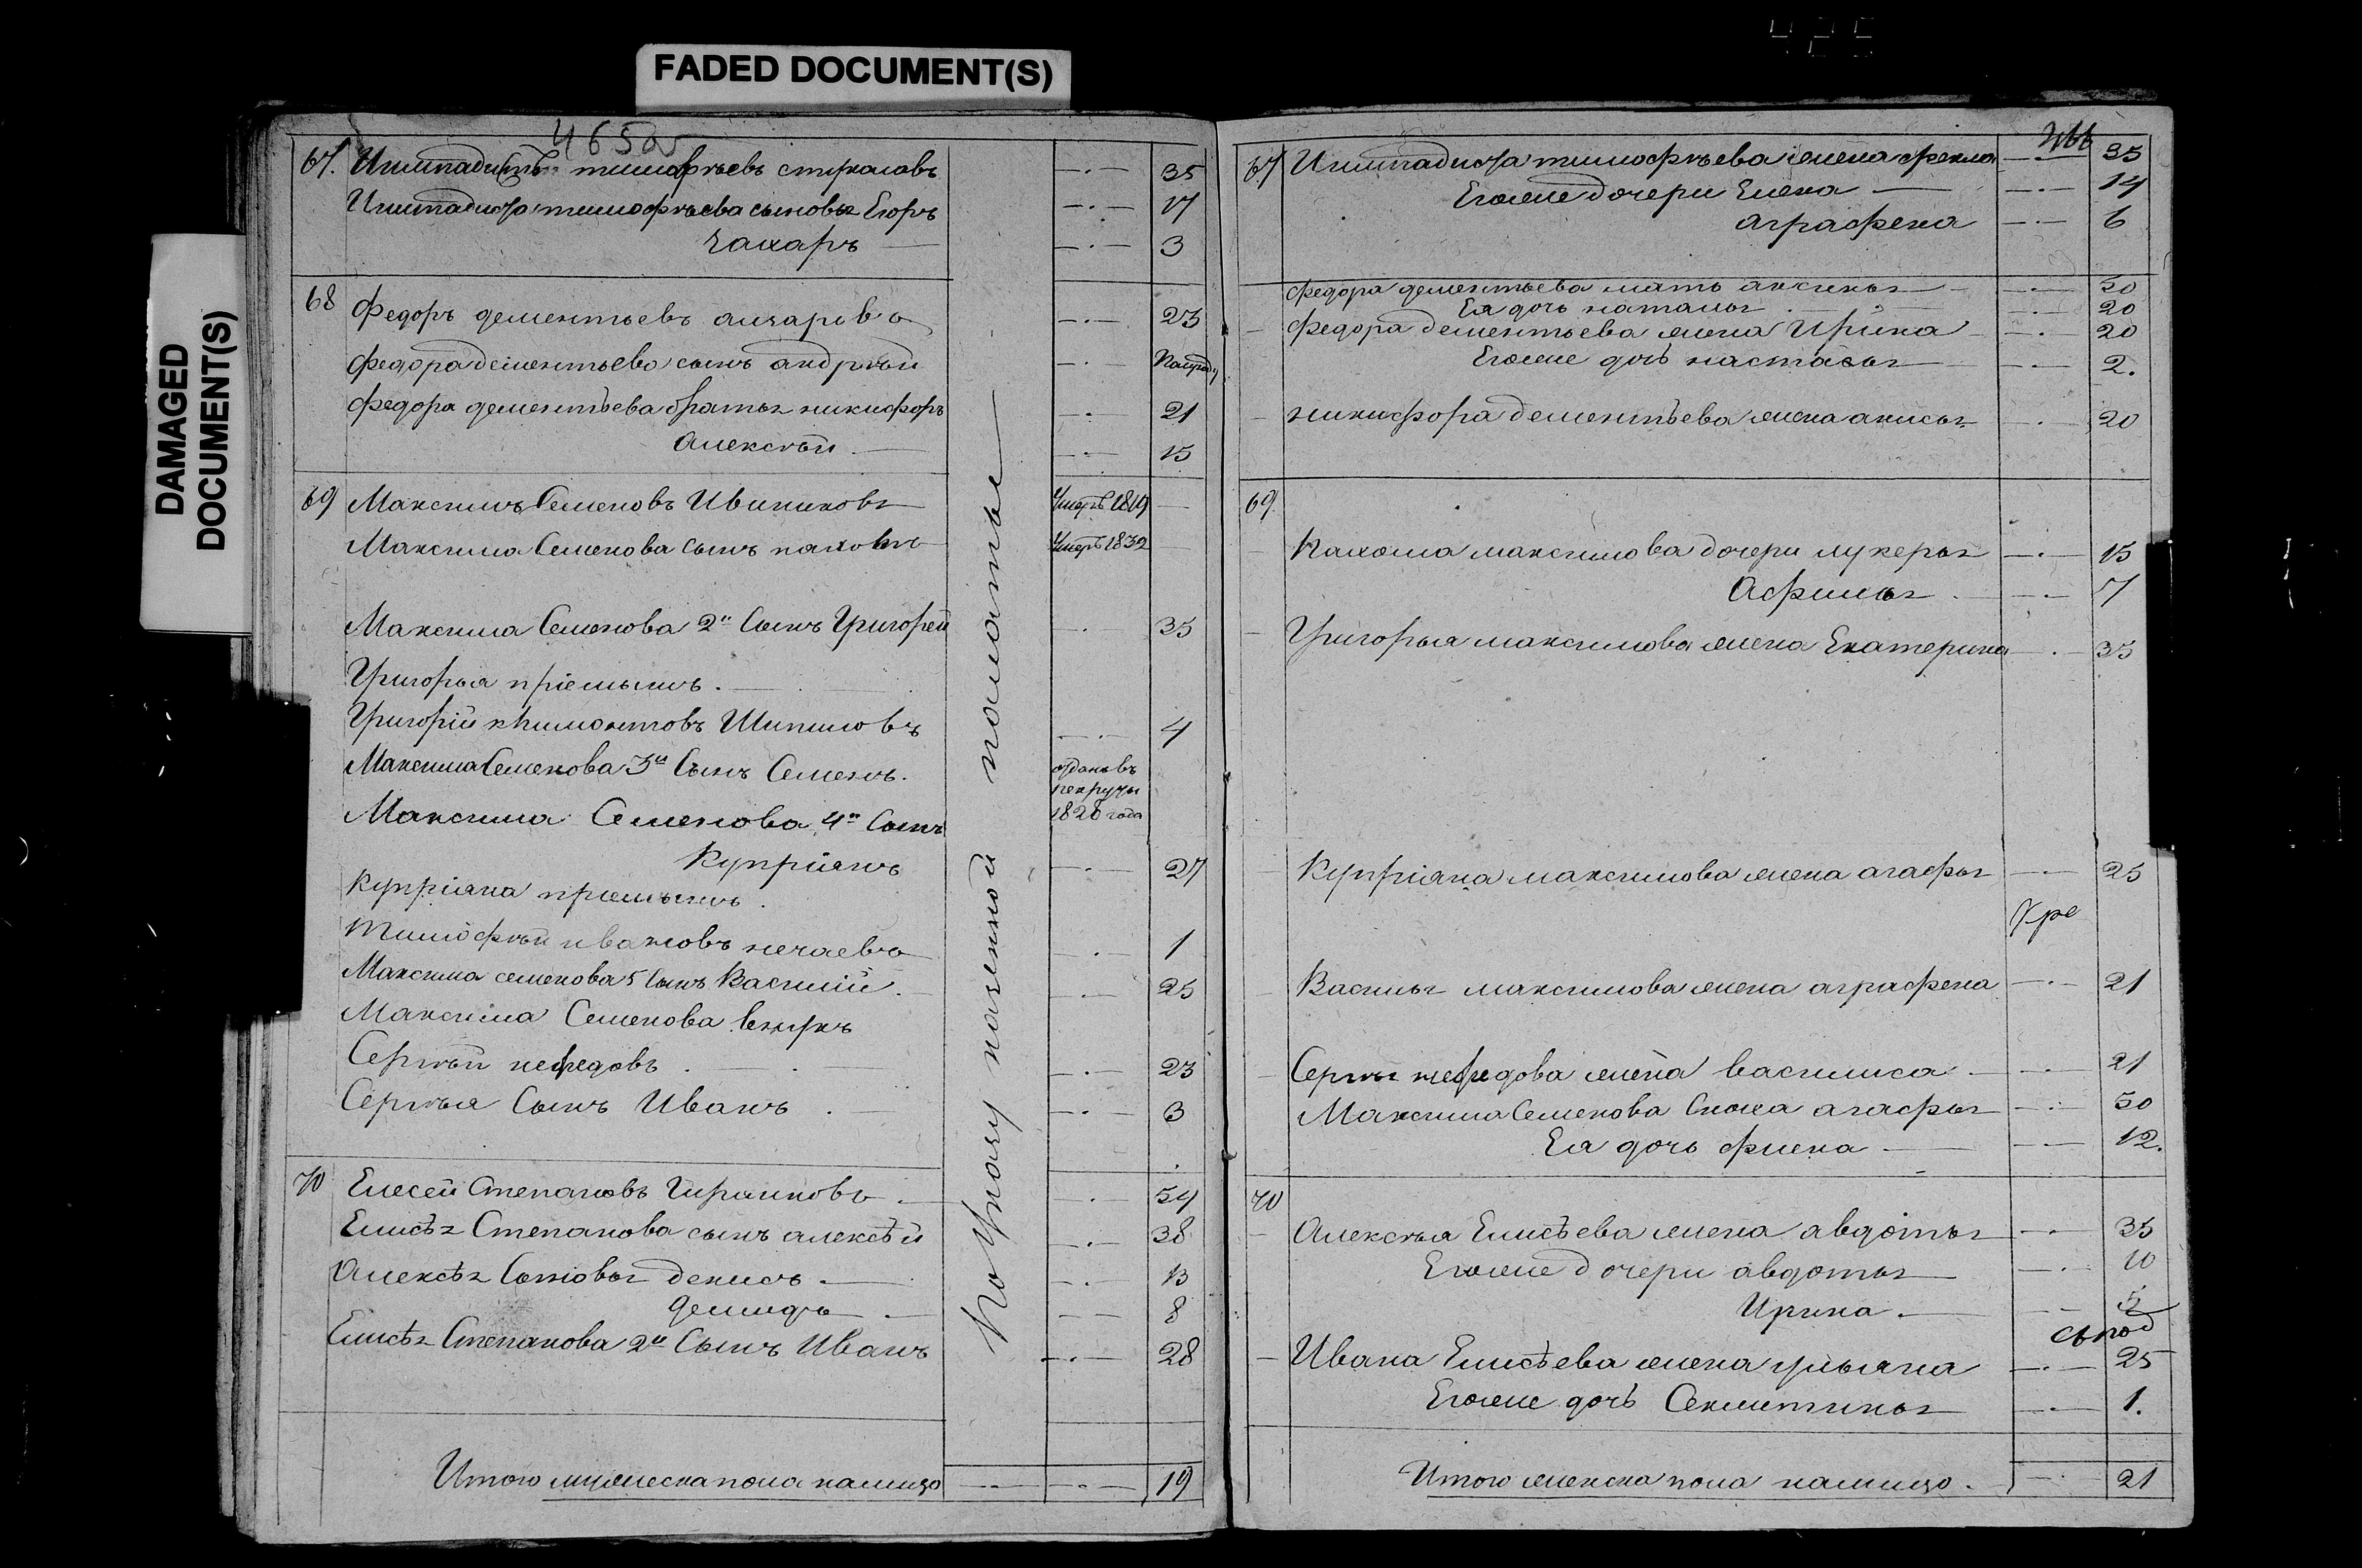 FADED DOCUMENT(S)
DAMAGED
DOCUMENT(S)
425
465об
67. тимофѣевъ 35
тимофѣева сыновья Егоръ 17
Захаръ 3
68 Федоръ дементьевъ 23
Федора дементьева сынъ андрѣй
Федора дементьева братья никифоръ 21
Алексѣй 15
69 Максимъ Семеновъ Умеръ 1819
Максима Семенова сынъ пахомъ Умеръ 1832
Максима Семенова 2й Сынъ Григорей 35
Григорья пріемышъ
Григорій Шипиловъ 4
Максима Семенова 3й Сынъ Семенъ. отданъ въ
рекруты
1828 года
Максима Семенова 4й Сынъ
Купріянъ 27
Купріяна пріемышъ.
Тимофѣй ивановъ нечаевъ 1
Максима семенова 5 Сынъ Василій. 25
Максима Семенова внукъ
Сергѣй нефедовъ 23
Сергѣя Сынъ Иванъ 3
70 Елесей Степановъ 54
Елисѣя Степанова сынъ алексѣй 38
Алексѣя Сыновья денисъ 13
демидъ 8
Елисѣя Степанова 2й Сынъ Иванъ 28
Итого мужеска пола налицо 19
67 тимофѣева жена фекла 35
Егоже дочери Елена 14
аграфена 6
Федора дементьева мать аксинья 50
Ея дочь наталья 20
Федора дементьева жена Ирина 20
Егоже дочь настасья 2.
никифора дементьева жена анисья 20
69
Пахома максимова дочери лукерья 15
Афимья 7
Григорья максимова жена Екатерина 35
Купріяна максимова жена агафья 25
Василья максимова жена аграфена 21
Сергѣя нефедова жена василиса 21
Максима Семенова Сноха агафья 50
Ея дочь 12.
70
Алексѣя Елисѣева жена авдотья 35
Егоже дочери авдотья 10
Ирина 5
Ивана Елисѣева жена ульяна 25
Егоже дочь 1.
Итого женска пола налицо. 21